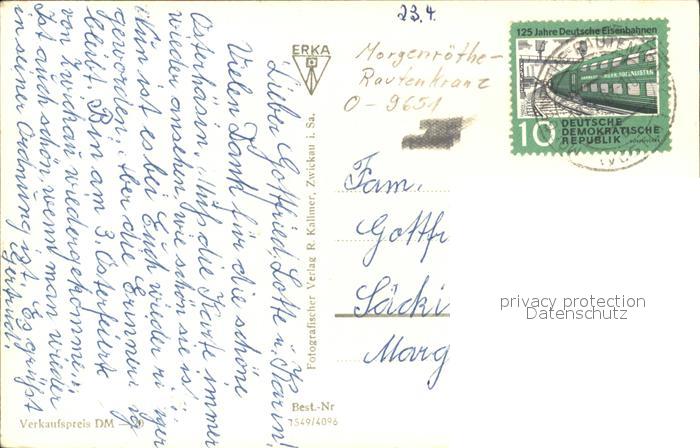 23.4.
Lieber Gottfried, Lotte u. Karin!
Vielen Dank für die schöne
Osterhäsin. Muß die Karte immer
wieder ansehen, wie schön sie ist.
Nun ist es bei Euch wieder ruhiger
geworden. Aber die Erinnerung
bleibt. Bin am 3. Osterfeiert.
von Zwickau wiedergekommen.
Ist auch schön wenn man wieder
in seiner Ordnung ist. Es grüßt
Gertrud.
Verkaufspreis DM —
ERKA
Fotografischer Verlag R. Kallmer, Zwickau i. Sa.
Best.-Nr
7549/4096
Morgenröthe-
Rautenkranz
O-9651
125 Jahre Deutsche Eisenbahnen
10 DEUTSCHE
DEMOKRATISCHE
REPUBLIK
Fam.
Gottfr
Säcki
Marg
privacy protection
Datenschutz